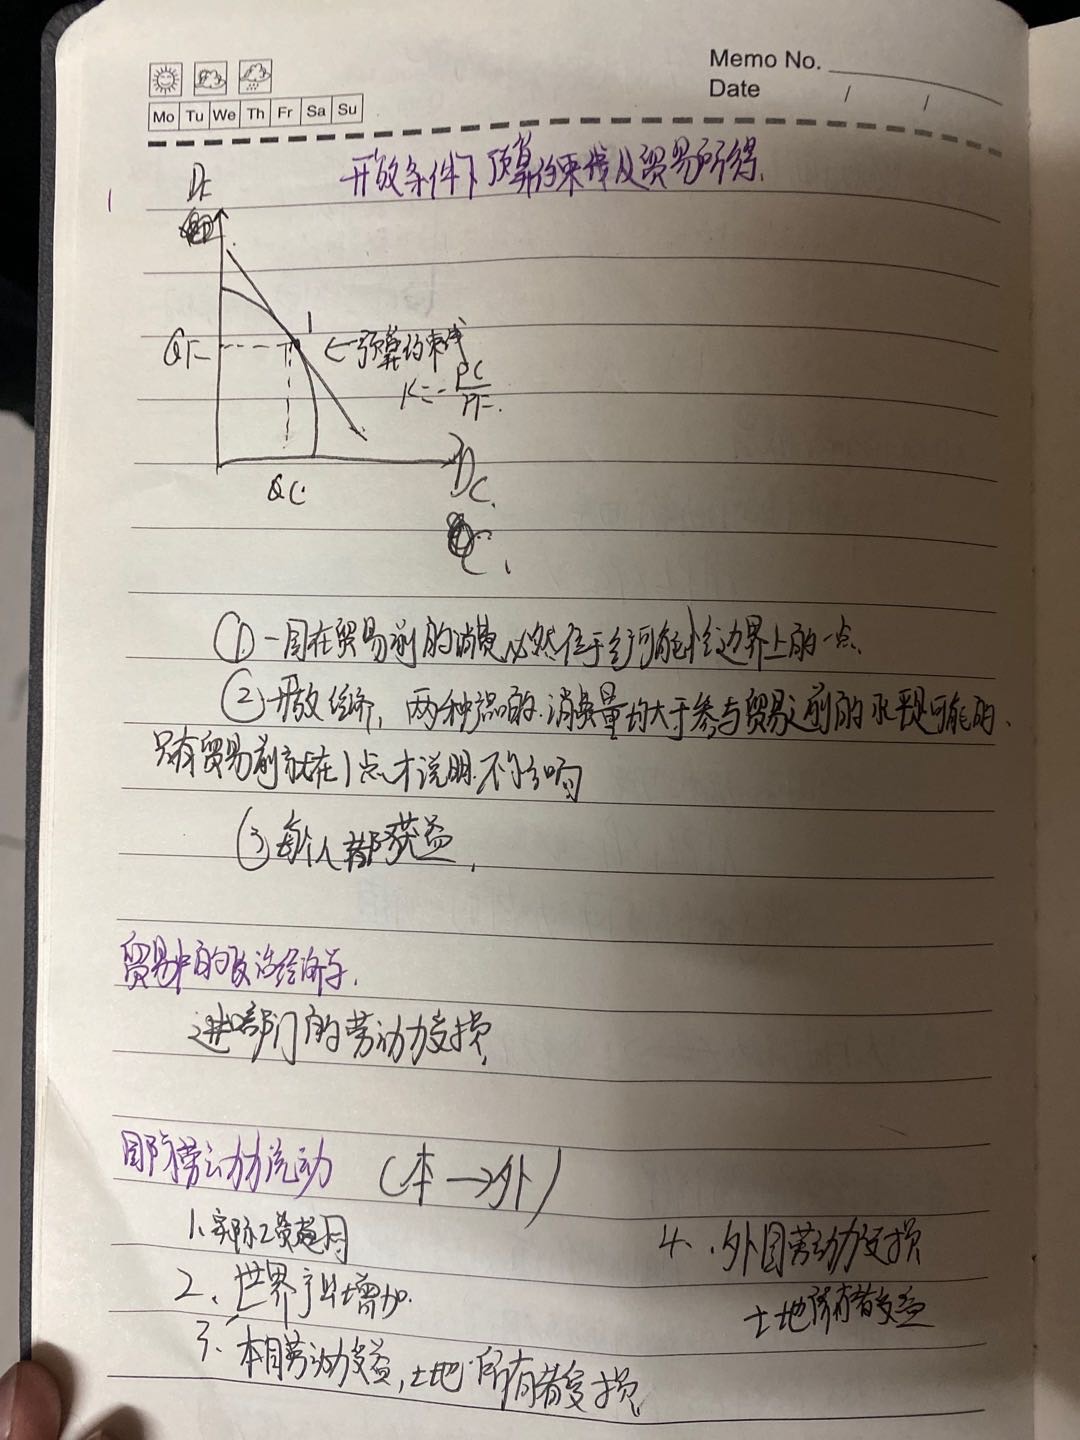 Memo No.
Date / /
Mo Tu We Th Fr Sa Su
开放条件下预算约束线及贸易所得.
1
DF
1
QF
←预算约束线
K=-PC/PF.
QC
DC.
①一国在贸易前的消费必然位于生产可能性边界上的一点.
②开放经济,两种产品的消费量均大于参与贸易之前的水平是可能的、
只有贸易前就在1点才说明不受影响
③每个人都获益.
贸易中的政治经济学.
进口部门的劳动力受损
国际劳动力流动 (本→外)
1.实际工资趋同
2、世界产出增加.
3、本国劳动力受益,土地所有者受损
4、外国劳动力受损
土地所有者受益